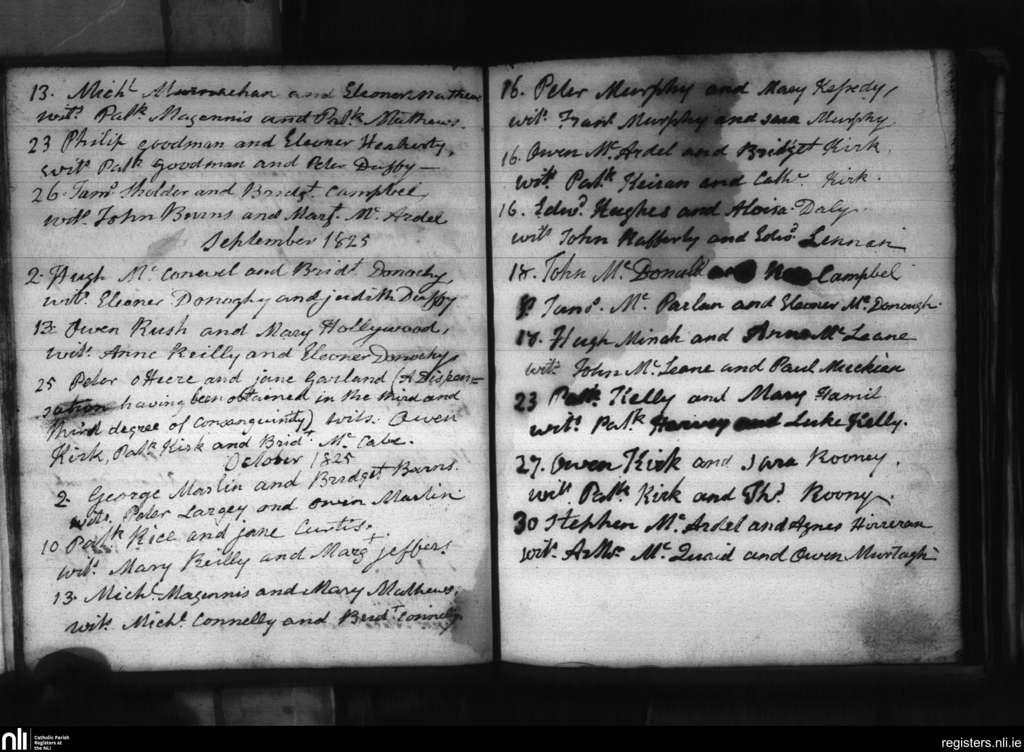 13. Michl and Eleoner Mathews
wits. Patk Magennis and Patk Mathews.
23 Philip Goodman and Eleoner Heaherty,
wits Patk Goodman and Peter Duffy—
26. Jams Sholder and Bridgt. Campbel
wits. John Burns and Margt. Mc. Ardel
September 1825
2. Hugh Mc. and Bridt. Donochy
wits. Eleoner Donaghy and judith Duffy
13. Owen Rush and Mary Hollywood,
wits. Anne Reilly and Eleoner Donochy
25 Peter oHeere and jane Garland (A Dispen=
sation having been obtained in the third and
third degree of consanguinity) wits. Owen
Kirk, Patk Kirk and Bridt. Mc. Cabe.
October 1825
2. George Marlin and Bridget Burns.
wits. Peter Largey and Owen Marlin
10 Patk Rice and jane Curtis.
wits. Mary Reilly and Margt jeffers
13. Michl. Magennis and Mary Mathews.
wits. Michl. Connelly and Bridt Connelly.
16. Peter Murphy and Mary
wits. Frans Murphy and sara Murphy
16. Owen Mc. Ardel and Bridget Kirk.
wits. Patk Keiran and Cathe. Kirk.
16. Edwd. Hughes and Aloisa Daly
wits John Rafferty and Edwd. Lennan
18. John Mc. Donald and Campbel
9. Jams. Mc. Parlan and Eleoner Mc. Donough.
17. Hugh Minah and Anne Mc Leane
wits John Mc. Leane and Paul Muckian
23 Patk. Kelly and Mary Hamil
wits. Patk Harvey and Luke Kelly.
27. Owen Kirk and sara Rooney.
wits. Patk Kirk and Ths. Roony.
30 Stephen Mc. Ardel and Agnes
wits. Arthr. Mc. Quaid and Owen Murtagh
nli
Catholic Parish
Registers at
the NLI
registers.nli.ie